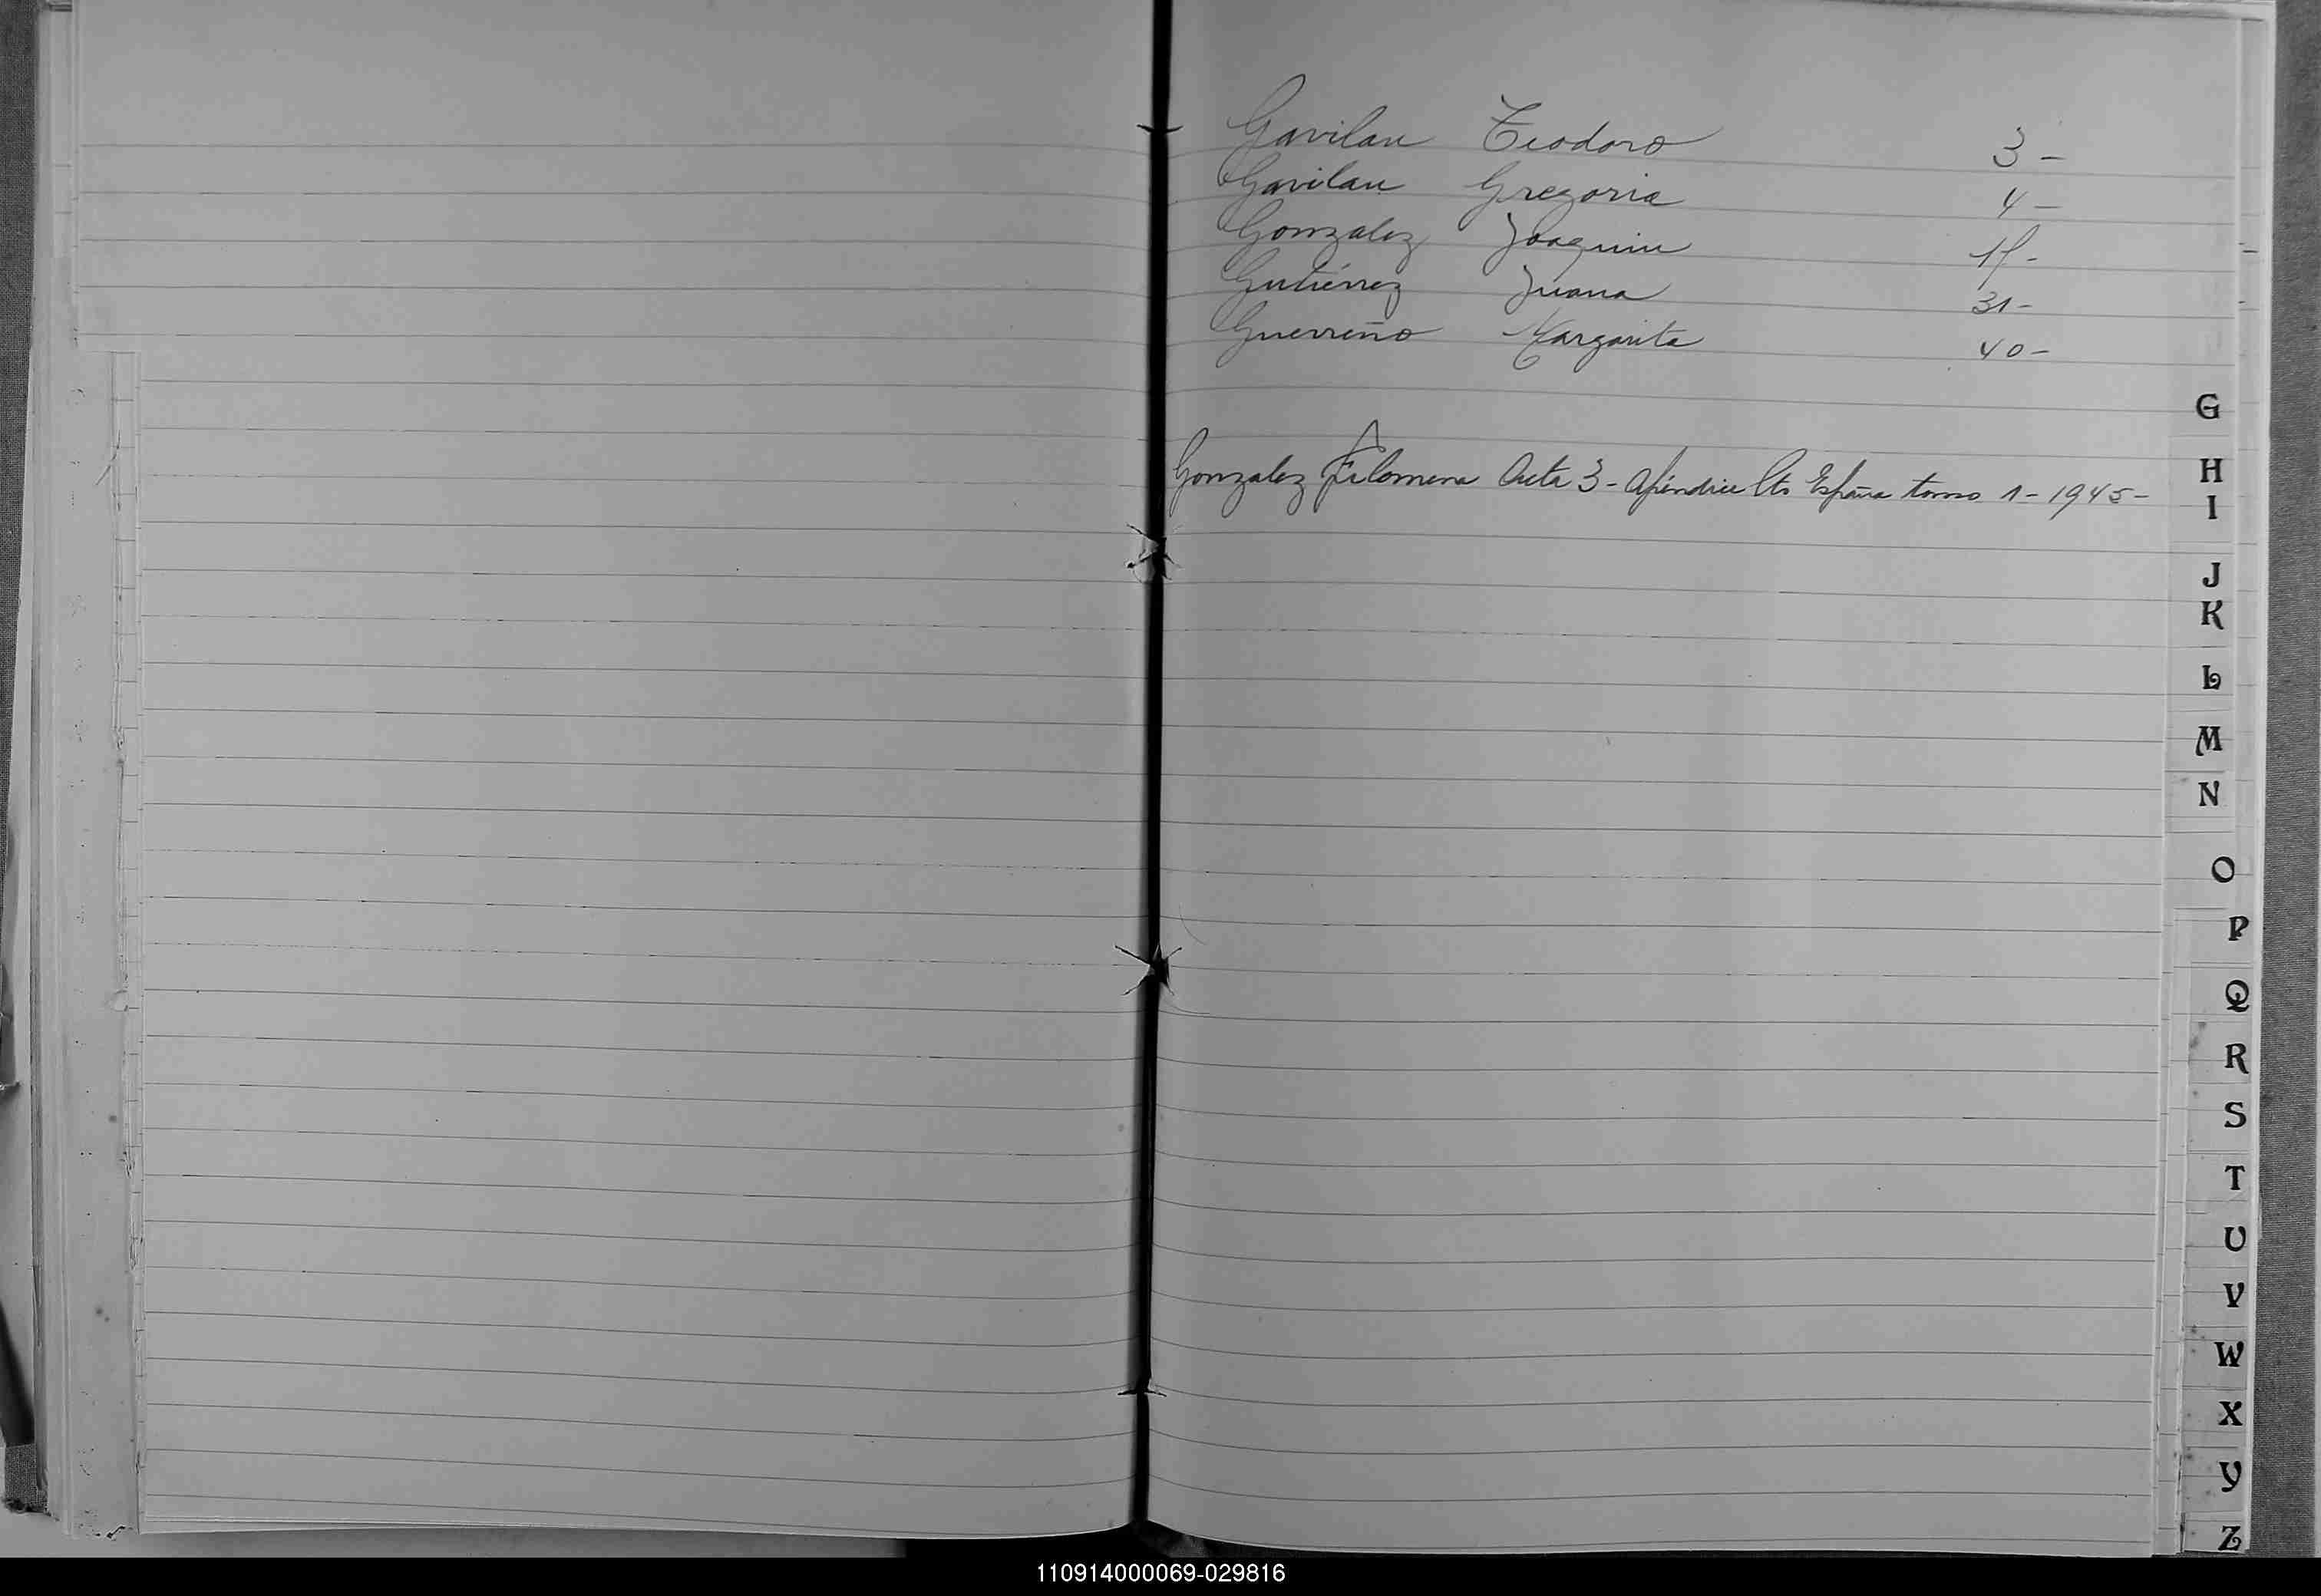 Gavilan Teodoro 3 -
Gavilan Gregoria 4 -
Gonzalez Joaquin -
Gutiérrez Juana 31 -
Guerreño Margarita 40 -
Gonzalez Filomena Acta 3 - Apéndice España tomo 1 - 1945 -
G
H
I
J
K
L
M
N
O
P
Q
R
S
T
U
V
W
X
Y
Z
110914000069-029816